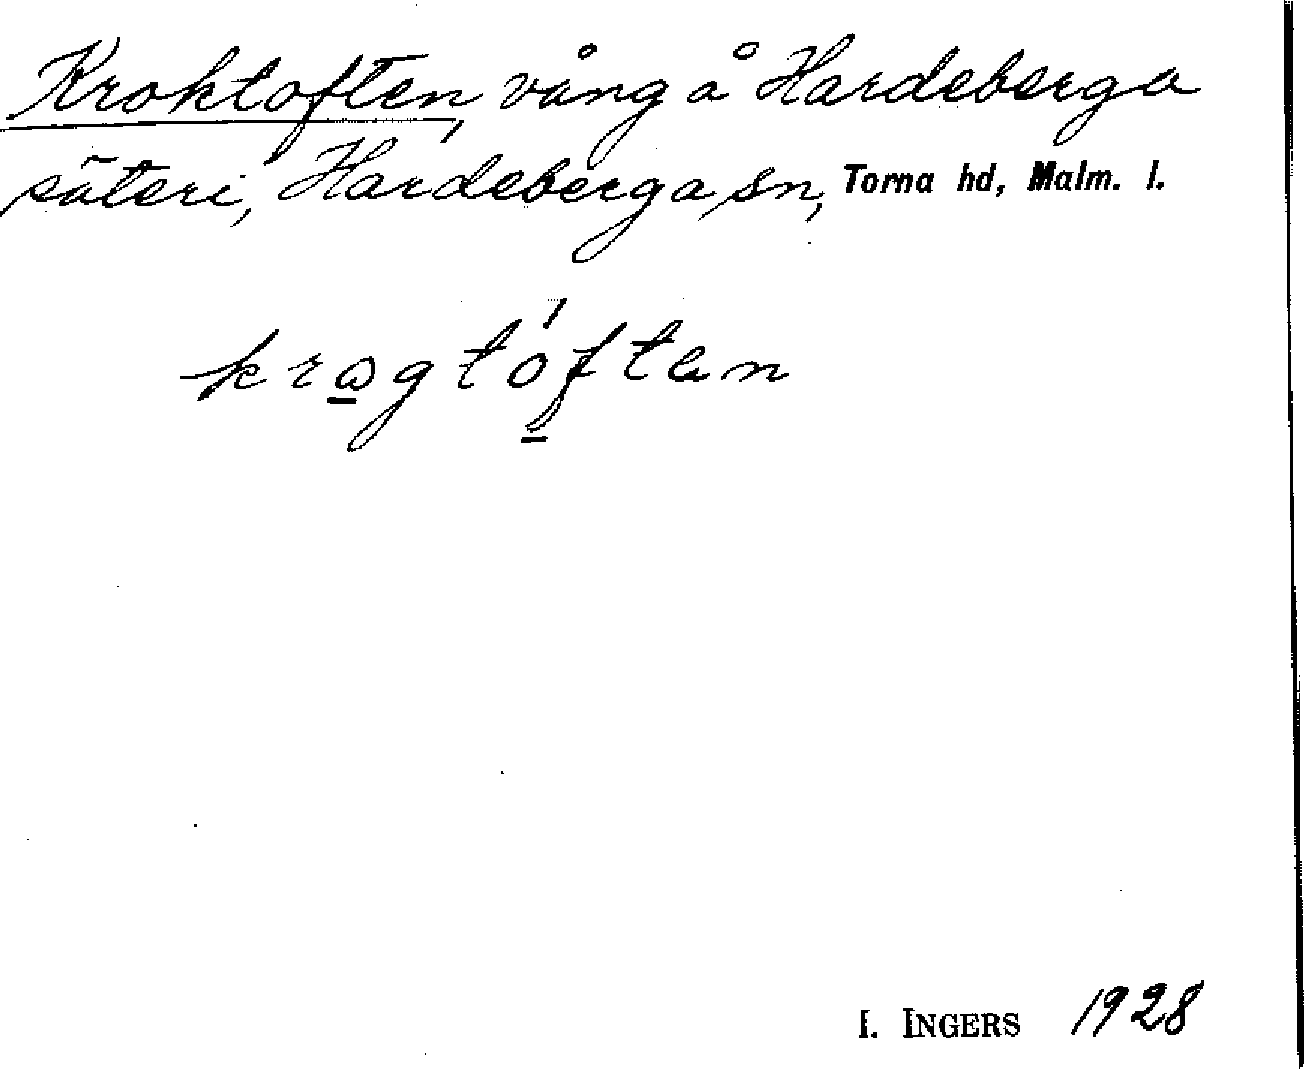 Kroktoften, vång å Hardeberga
säteri, Hardeberga sn, Torna hd, Malm. l.
krɷgtóften
I. INGERS 1928